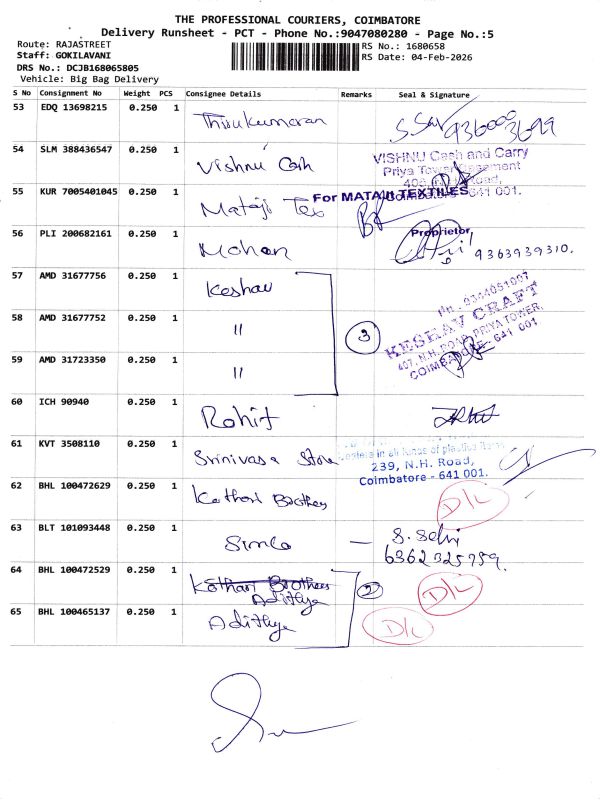 THE PROFESSIONAL COURIERS, COIMBATORE
Delivery Runsheet - PCT - Phone No.:9047080280 - Page No.:5
Route: RAJASTREET
Staff: GOKILAVANI
DRS No.: DCJB168065805
Vehicle: Big Bag Delivery
RS No.: 1680658
RS Date: 04-Feb-2026
S No Consignment No Weight PCS Consignee Details Remarks Seal & Signature
53 EDQ 13698215 0.250 1 Thirukumaran
54 SLM 388436547 0.250 1 Vishnu Cash VISHNU Cash and Carry
Priya Tower Basement
Road,
Coimbatore - 641 001.
55 KUR 7005401045 0.250 1 Mataji Tex For MATAJI TEXTILES
Proprietor
56 PLI 200682161 0.250 1 Mohan 9363939310.
57 AMD 31677756 0.250 1 Keshav
58 AMD 31677752 0.250 1 " 3 Ph : 9344051007
KESHAV CRAFT
407, N.H. ROAD, PRIYA TOWER,
COIMBATORE - 641 001
59 AMD 31723350 0.250 1 "
60 ICH 90940 0.250 1 Rohit
61 KVT 3508110 0.250 1 Srinivasa Store in all kinds of plastics Items
239, N.H. Road,
Coimbatore - 641 001.
62 BHL 100472629 0.250 1 Kothari Brothers D/L
63 BLT 101093448 0.250 1 Simco — S. Selvi
6362325759.
64 BHL 100472529 0.250 1 Kothari Brothers 2 D/L
Adithya
65 BHL 100465137 0.250 1 Adithya D/L